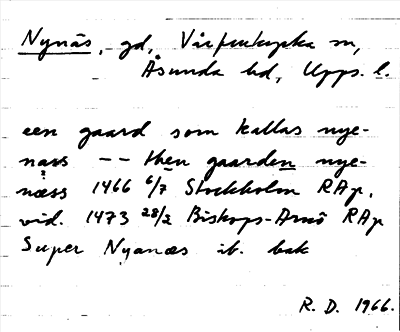 Nynäs, gd, Vårfrukyrka sn,
Åsunda hd, Upps. l.
een gaard som kallas nye-
näss -- then gaarden nye-
næss 1466 6/7 Stockholm RAp.
vid. 1473 28/2 Biskops-Arnö RAp
Super Nyanæs ib. bak
R. D. 1966.